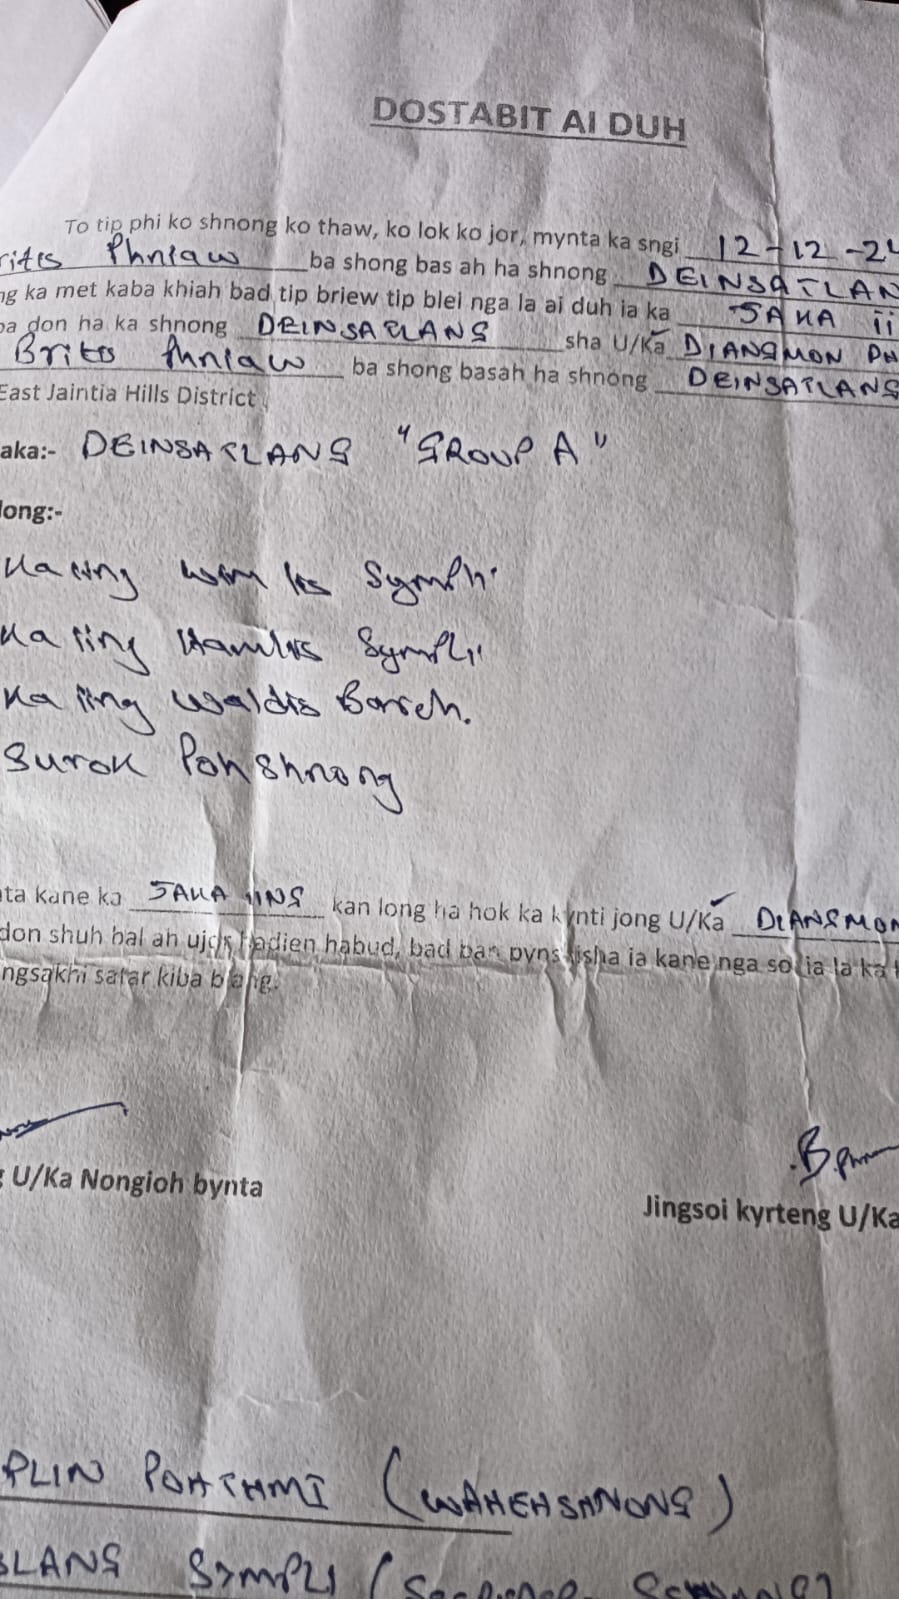 DOSTABIT AI DUH
To tip phi ko shnong ko thaw, ko lok ko jor, mynta ka sngi 12-12-24
rites Phniaw ba shong bas ah ha shnong DEINSATLAN
ng ka met kaba khiah bad tip briew tip blei nga la ai duh ia ka JAKA ii
ba don ha ka shnong DEINSATLANG sha U/Ka DIANGMON PH
Brites Phniaw ba shong basah ha shnong DEINSATLANG
East Jaintia Hills District.
aka:- DEINSATLANG "GROUP A"
long:-
Ka iing Symphi
Ka iing Hamlus Sympli
Ka iing Waldis Bareh.
Surok Pohshnong
ta kane ka JAKA IING kan long ha hok ka kynti jong U/Ka DIANGMON
don shuh bal ah ujor hadien habud, bad ban pynskhisha ia kane nga soi ia la ka
ngsakhi satar kiba blang.
B Phn
U/Ka Nongioh bynta
Jingsoi kyrteng U/Ka
PLIN POHTHMI (WAHEHSHNONG)
BLANG SYMPLI (